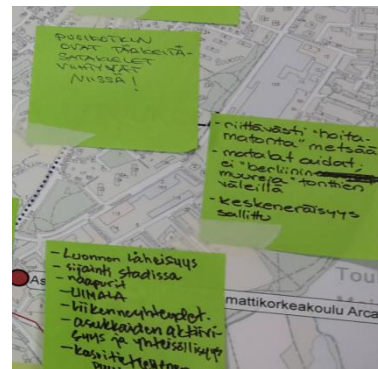 PUSIKOTKIN
OVAT TÄRKEITÄ-
SATAKIELET
VIIHTYVÄT
NIISSÄ!
- riittävästi "hoita-
matonta" metsää
- matalat aidat,
ei "berliinin
muureja" tonttien
väleillä
- keskeneräisyys
sallittu
- Luonnon läheisyys
- sijainti stadissa
- naapurit
- UIMALA
- liikenneyhteydet.
- asukkaiden aktiivi-
suus ja yhteisöllisyys
As
Tou
mattikorkeakoulu Arca